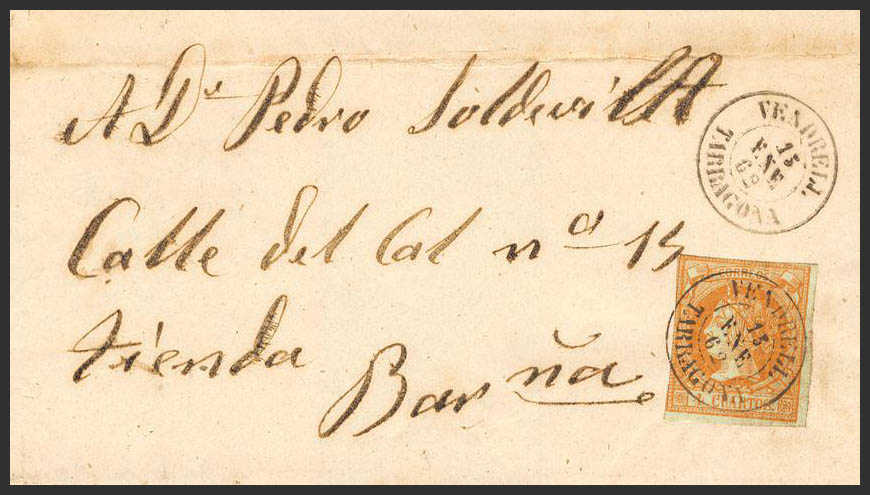 A Dn Pedro Soldevilla
Calle del Cal no 15
tienda
Barña
VENDRELL.
15
ENE
62
TARRAGONA
CORREOS
VENDRELL.
15
ENE
62
TARRAGONA
4 CUARTOS